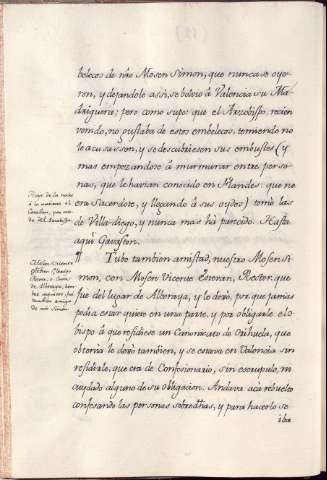 belecos de nr̃o Mosen Simon, que nunca se oye-
ron, y dejandole assi, se bolvio à Valencia su Ma-
driguera; pero como supo que el Arzobispo recien
venido, no gustava de estos embelecos, temiendo no
le acusassen, y se descubriesen sus embustes (y
mas empezandose à murmurar entre perso-
nas, que le havian conocido en Flandes: que no
era Sacerdote, y llegando à sus oydos) tomò las
de Villa-diego, y nunca mas ha parecido. Hasta
aqui Gavaston.
de la noche
à la mañana el
Cavallero, por mie-
do del Arzobispo
¶ Tubo tambien amistad, nuestro Mosen Si-
mon, con Mosen Vicente Estevan, Retor que
fue del lugar de Alboraya, y lo dexò, por que jamàs
podia estar quieto en una parte, y por obligarle el O-
bispo à que residiese un Canonicato de Orihuela, que
obtenia le dexò tambien, y se estava en Valencia sin
residirle, que era de Confesonario, sin escrupulo, ni
cuydado alguno de su obligacion. Andava acà rebuelto
confesando las personas sobredh̃as, y para hacerlo se
iba
Mosen Vicente
Estevan
Retor, o Cura
de Alboraya, hom-
bre inquieto fue
tambien amigo
de mn Simon